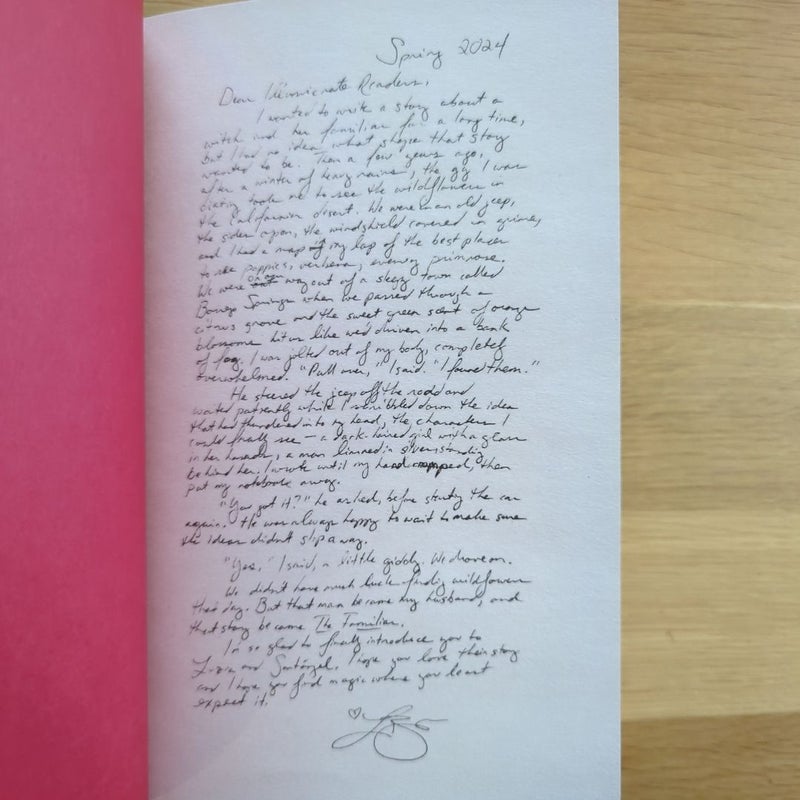 Spring 2024
Dear Illumicrate Readers,
I wanted to write a story about a
witch and her familiar for a long time,
but I had no idea what shape that story
wanted to be. Then a few years ago,
after a winter of heavy rains, the guy I was
dating took me to see the wildflowers in
the California desert. We were in an old jeep,
the sides open, the windshield covered in grime,
and I had a map in my lap of the best places
to see poppies, verbena, evening primrose.
We were on our way out of a sleepy town called
Borrego Springs when we passed through a
citrus grove and the sweet green scent of orange
blossoms hit us like we'd driven into a bank
of fog. I was jolted out of my body, completely
overwhelmed. "Pull over," I said. "I found them."
He steered the jeep off the road and
waited patiently while I scribbled down the idea
that had thundered into my head, the characters I
could finally see – a dark-haired girl with a glass
in her hands, a man limned in silver standing
behind her. I wrote until my hand cramped, then
put my notebook away.
"You got it?" he asked, before starting the car
again. He was always happy to wait to make sure
the ideas didn't slip away.
"Yes," I said, a little giddy. We drove on.
We didn't have much luck finding wildflowers
that day. But that man became my husband, and
that story became The Familiar.
I'm so glad to finally introduce you to
Luzia and Santángel. I hope you love their story
and I hope you find magic where you least
expect it.